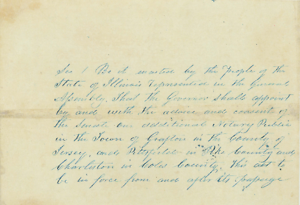 Sec 1 Be it enacted by the People of the
State of Illinois represented in the General
Assembly, That the Governor shall appoint
by and with the advice and consent of
the Senate one additional Notary Public
in the Town of Grafton in the County of
Jersey, and Pittsfield in Pike County and
Charleston in Coles County, This act to
be in force from and after its passage